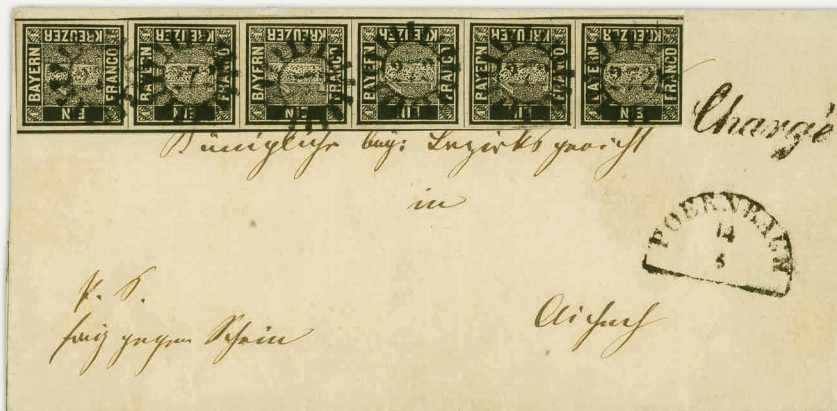 BAYERN KREUZER FRANCO EIN BAYERN KREUZER FRANCO EIN BAYERN KREUZER FRANCO EIN BAYERN KREUZER FRANCO EIN BAYERN KREUZER FRANCO EIN BAYERN KREUZER FRANCO EIN
Chargé
Königliche bay: Bezirksgericht
in
POERNBACH
14
5
P. S.
frei gegen Schein
Aichach